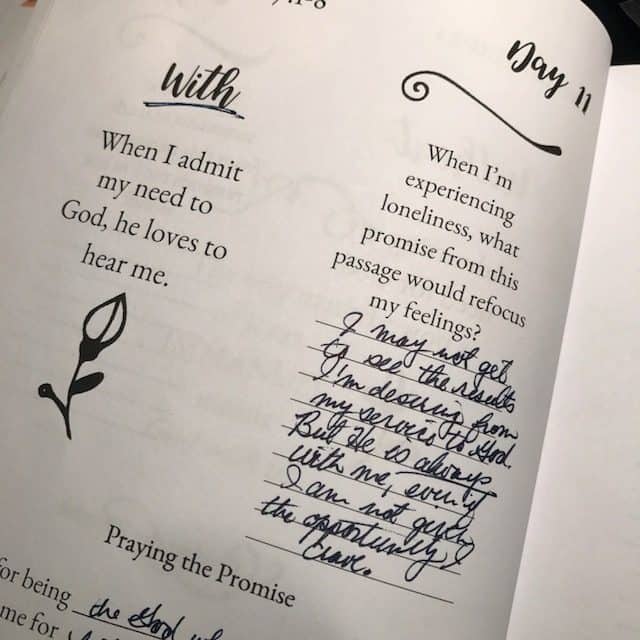 Day 11
With
When I admit
my need to
God, he loves to
hear me.
When I'm
experiencing
loneliness, what
promise from this
passage would refocus
my feelings?
I may not get
to see the results
I'm desiring from
my service to God.
But He is always
with me, even if
I am not given
the opportunity I
crave.
Praying the Promise
for being the God
me for